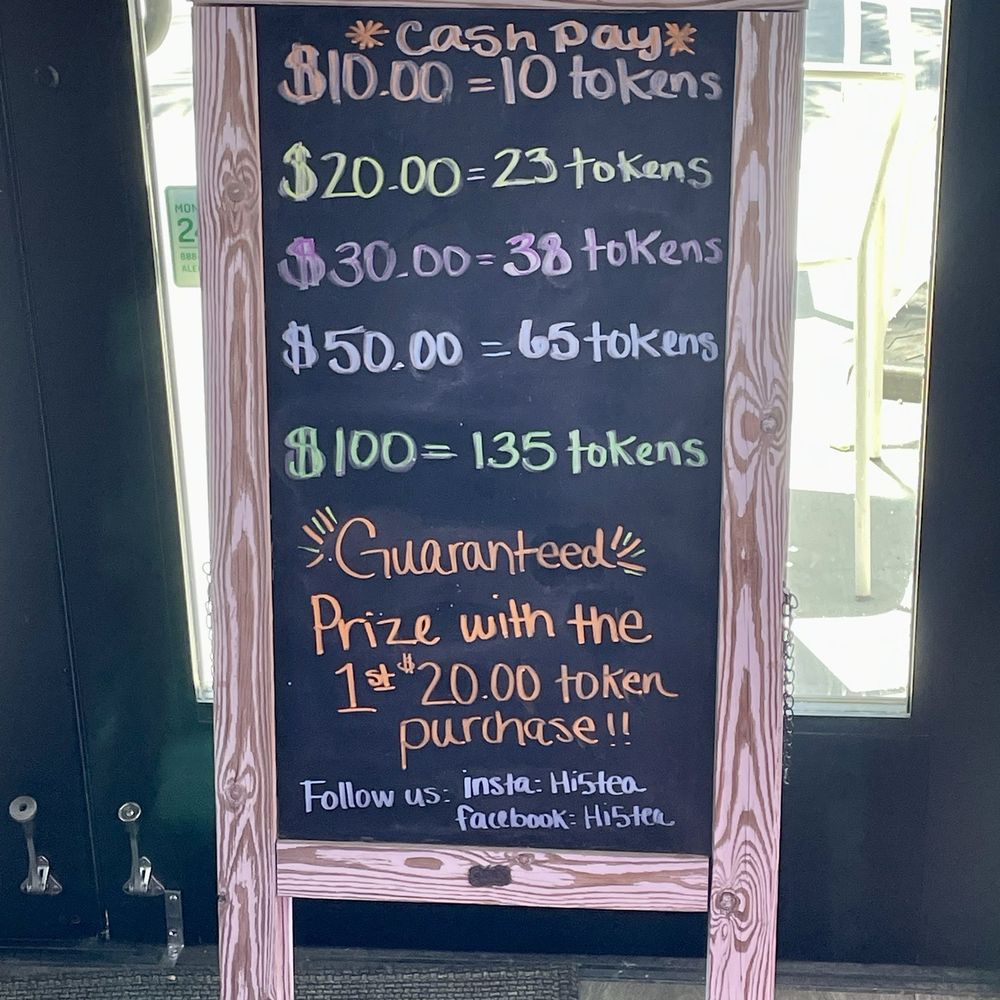 Cash Pay
$10.00 = 10 tokens
$20.00 = 23 tokens
$30.00 = 38 tokens
$50.00 = 65 tokens
$100 = 135 tokens
Guaranteed
Prize with the
1st $20.00 token
purchase!!
Follow us: insta: Hi5tea
facebook: Hi5tea
MON
2
888
ALE